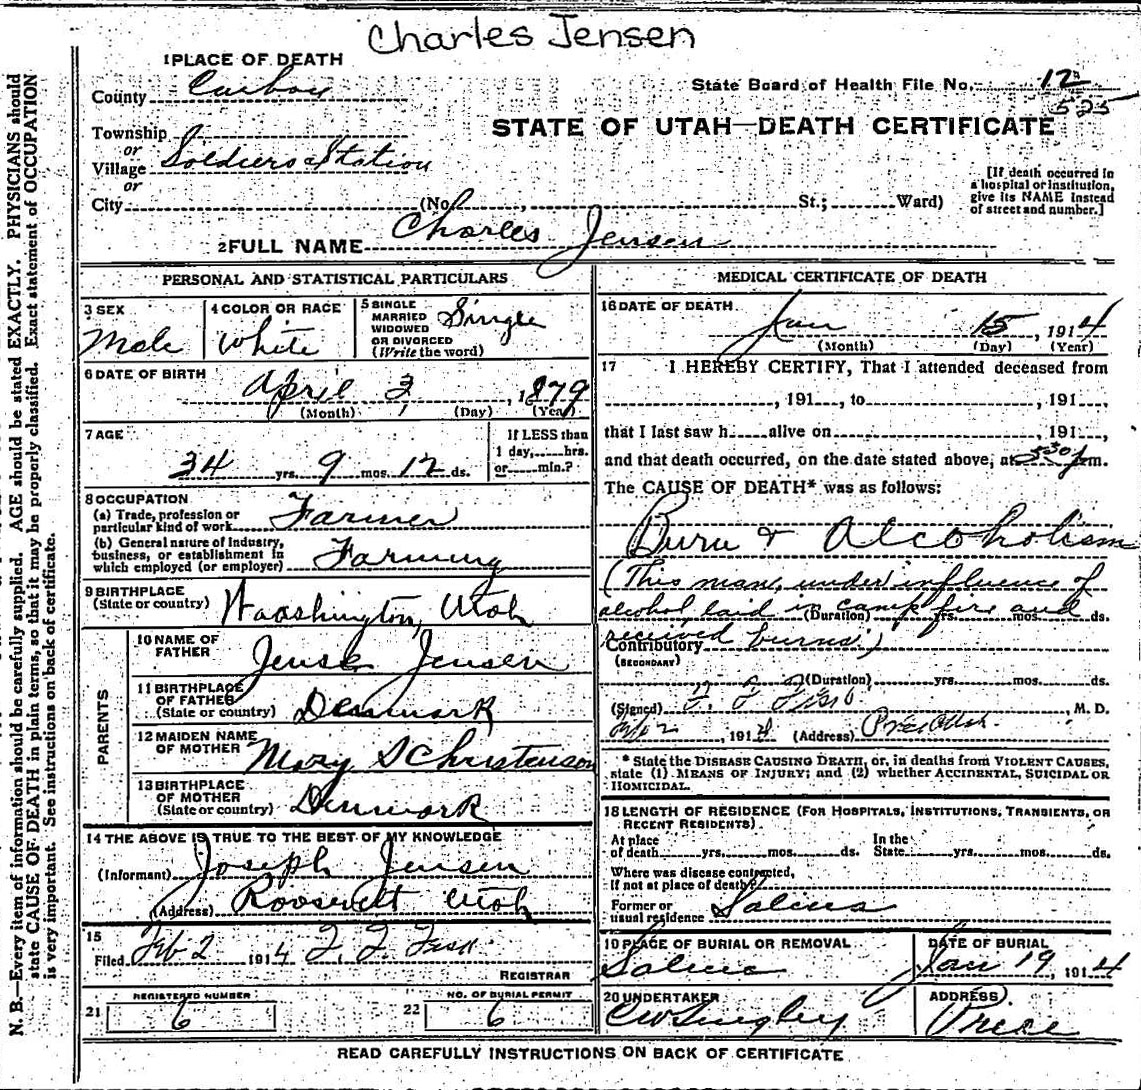 Charles Jensen
1 PLACE OF DEATH
County Carbon
State Board of Health File No. 12
525
STATE OF UTAH—DEATH CERTIFICATE
Township
or
Village Soldiers Station
or
City (No. , St.; Ward)
[If death occurred in a hospital or institution, give its NAME instead of street and number.]
2 FULL NAME Charles Jensen
PERSONAL AND STATISTICAL PARTICULARS
3 SEX
Male
4 COLOR OR RACE
White
5 SINGLE
MARRIED
WIDOWED
OR DIVORCED
(Write the word)
Single
6 DATE OF BIRTH
April 3, 1879
(Month) (Day) (Year)
7 AGE
34 yrs. 9 mos. 12 ds.
If LESS than
1 day, hrs.
or min.?
8 OCCUPATION
(a) Trade, profession or
particular kind of work Farmer
(b) General nature of industry,
business, or establishment in
which employed (or employer) Farming
9 BIRTHPLACE
(State or country) Waashington, Utah
PARENTS
10 NAME OF
FATHER Jense Jensen
11 BIRTHPLACE
OF FATHER
(State or country) Denmark
12 MAIDEN NAME
OF MOTHER Mary S Christenson
13 BIRTHPLACE
OF MOTHER
(State or country) Denmark
14 THE ABOVE IS TRUE TO THE BEST OF MY KNOWLEDGE
(Informant) Joseph Jensen
(Address) Roosevelt Utah
15
Filed Feb 2 1914 F. F. Fisk
REGISTRAR
21 REGISTERED NUMBER
6
22 NO. OF BURIAL PERMIT
6
MEDICAL CERTIFICATE OF DEATH
16 DATE OF DEATH
Jan 15, 1914
(Month) (Day) (Year)
17 I HEREBY CERTIFY, That I attended deceased from
, 191 , to , 191 ,
that I last saw h alive on , 191 ,
and that death occurred, on the date stated above, at 530 p m.
The CAUSE OF DEATH* was as follows:
Burn & Alcoholism
(This man, under influence of
alcohol laid in camp fire and
(Duration) yrs. mos. ds.
received burns.)
Contributory
(SECONDARY)
(Duration) yrs. mos. ds.
(Signed) F. F. Fisk, M. D.
Feb 2, 1914 (Address) Price Utah.
* State the DISEASE CAUSING DEATH, or, in deaths from VIOLENT CAUSES,
state (1) MEANS OF INJURY; and (2) whether ACCIDENTAL, SUICIDAL OR
HOMICIDAL.
18 LENGTH OF RESIDENCE (FOR HOSPITALS, INSTITUTIONS, TRANSIENTS, OR
RECENT RESIDENTS).
At place
of death yrs. mos. ds.
In the
State yrs. mos. ds.
Where was disease contracted,
if not at place of death?
Former or
usual residence Salina
19 PLACE OF BURIAL OR REMOVAL
Salina
DATE OF BURIAL
Jan 19, 1914
20 UNDERTAKER
ADDRESS
Price
READ CAREFULLY INSTRUCTIONS ON BACK OF CERTIFICATE
N. B.—Every item of information should be carefully supplied. AGE should be stated EXACTLY. PHYSICIANS should
state CAUSE OF DEATH in plain terms, so that it may be properly classified. Exact statement of OCCUPATION
is very important. See instructions on back of certificate.